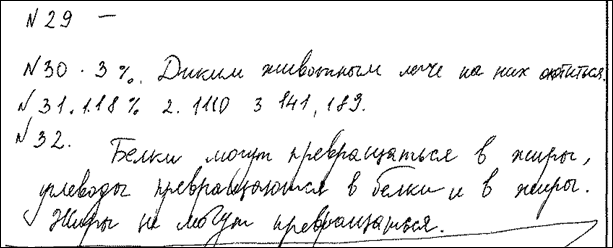 N 29 —
N 30 . 3 %. Диким животным легче на них охотиться.
N 31. 1.18 % 2. 1110 3 141, 189.
N 32.
Белки могут превращаться в жиры,
углеводы превращаются в белки и в жиры.
Жиры не могут превращаться.